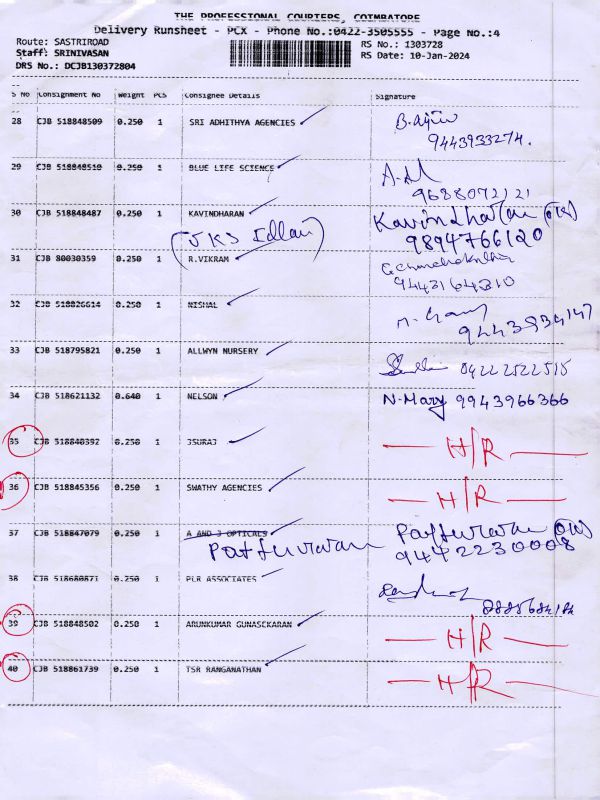 THE PROFESSIONAL COURIERS, COIMBATORE
Delivery Runsheet - PCX - Phone No.:0422-3505555 - Page No.:4
Route: SASTRIROAD
Staff: SRINIVASAN
DRS No.: DCJB130372804
RS No.: 1303728
RS Date: 10-Jan-2024
S No Consignment No Weight PCS Consignee Details Signature
28 CJB 518848509 0.250 1 SRI ADHITHYA AGENCIES
9443933274.
29 CJB 518848510 0.250 1 BLUE LIFE SCIENCE
9688072121
30 CJB 518848487 0.250 1 KAVINDHARAN Kavindharan
9894766120
31 CJB 80030359 0.250 1 R.VIKRAM
9443164310
32 CJB 518826614 0.250 1 NISHAL
9443934147
33 CJB 518795821 0.250 1 ALLWYN NURSERY 04222522515
34 CJB 518621132 0.640 1 NELSON N-Mary 9943966366
35 CJB 518840392 0.250 1 JSURAJ H/R
36 CJB 518845356 0.250 1 SWATHY AGENCIES H/R
37 CJB 518847079 0.250 1 A AND J OPTICALS
9442230008
38 CJB 518680871 0.250 1 PLR ASSOCIATES
39 CJB 518848502 0.250 1 ARUNKUMAR GUNASCKARAN H/R
40 CJB 518861739 0.250 1 TSR RANGANATHAN H/R